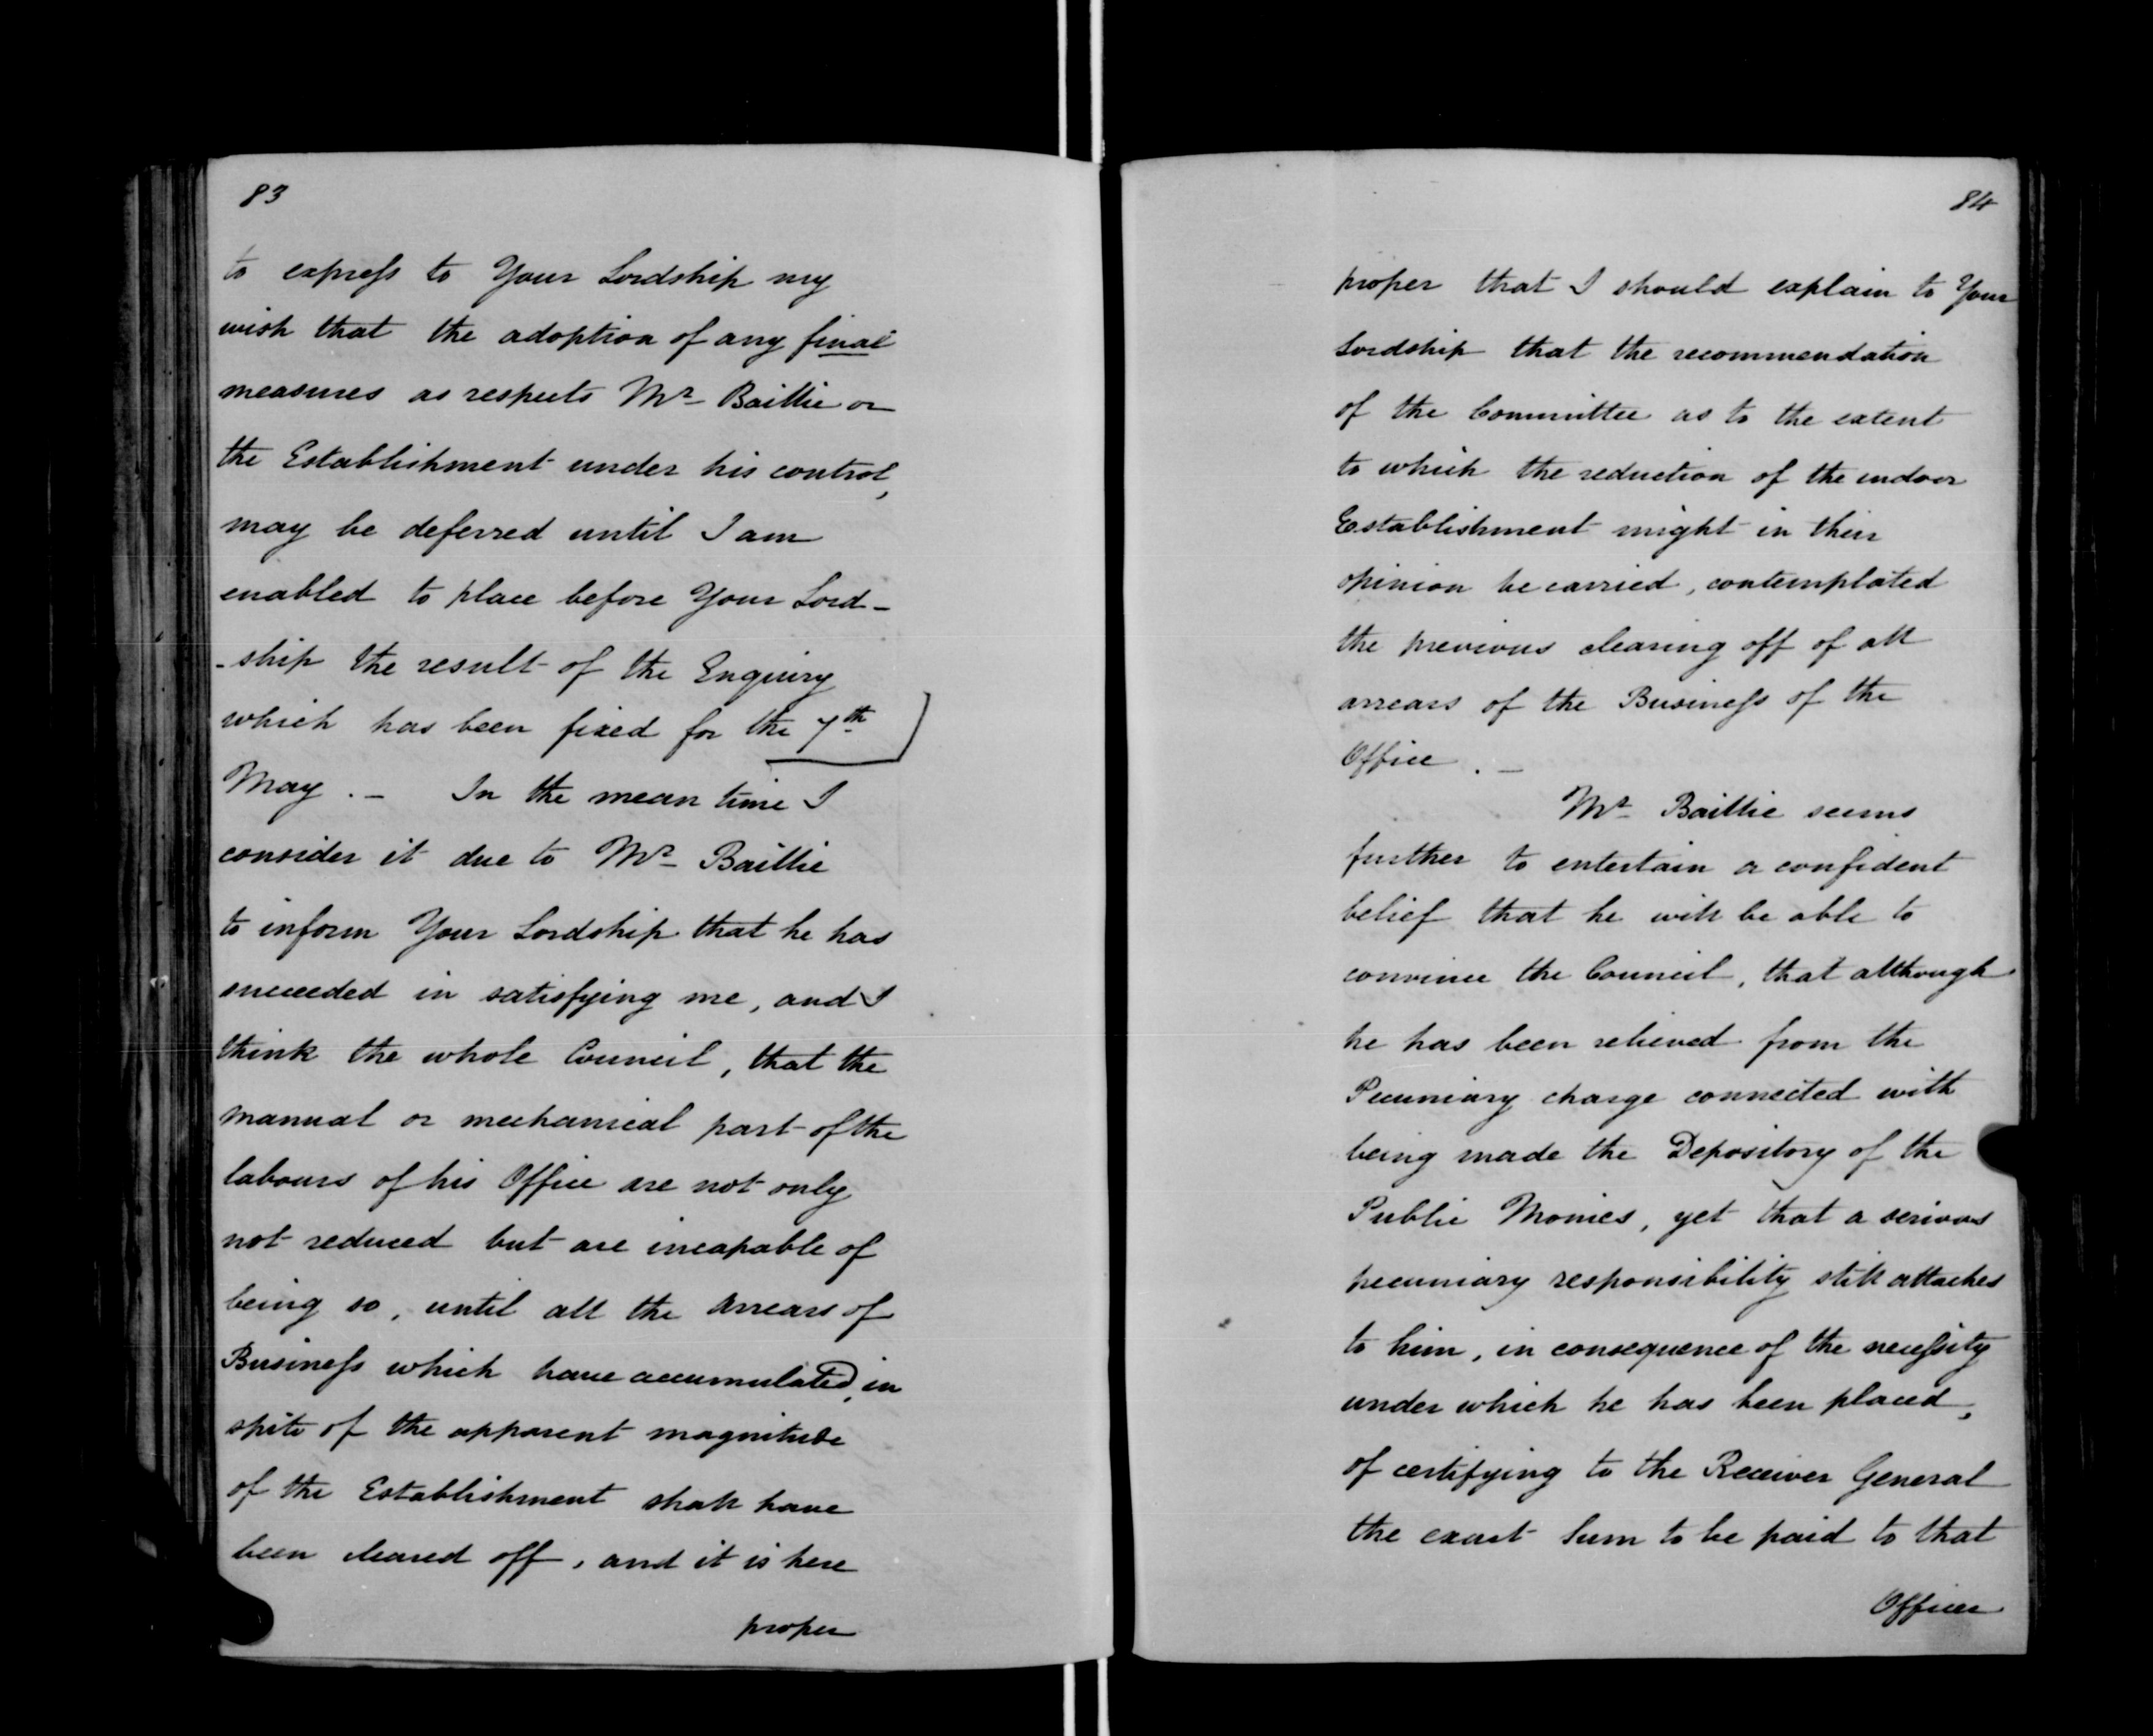 83
to express to Your Lordship my
wish that the adoption of any final
measures as respects Mr Baillie or
the Establishment under his control,
may be deferred until I am
enabled to place before Your Lord-
-ship the result of the Enquiry
which has been fixed for the 7th
May. - In the mean time I
consider it due to Mr Baillie
to inform Your Lordship that he has
succeeded in satisfying me, and I
think the whole Council, that the
manual or mechanical part of the
labours of his Office are not only
not reduced but are incapable of
being so, until all the arrears of
Business which have accumulated, in
spite of the apparent magnitude
of the Establishment shall have
been cleared off, and it is here
proper
84
proper that I should explain to Your
Lordship that the recommendation
of the Committee as to the extent
to which the reduction of the indoor
Establishment might in their
opinion be carried, contemplated
the previous clearing off of all
arrears of the Business of the
Office. -
Mr Baillie seems
further to entertain a confident
belief that he will be able to
convince the Council, that although
he has been relieved from the
Pecuniary charge connected with
being made the Depository of the
Public Monies, yet that a serious
pecuniary responsibility still attaches
to him, in consequence of the necessity
under which he has been placed,
of certifying to the Receiver General
the exact Sum to be paid to that
Officer